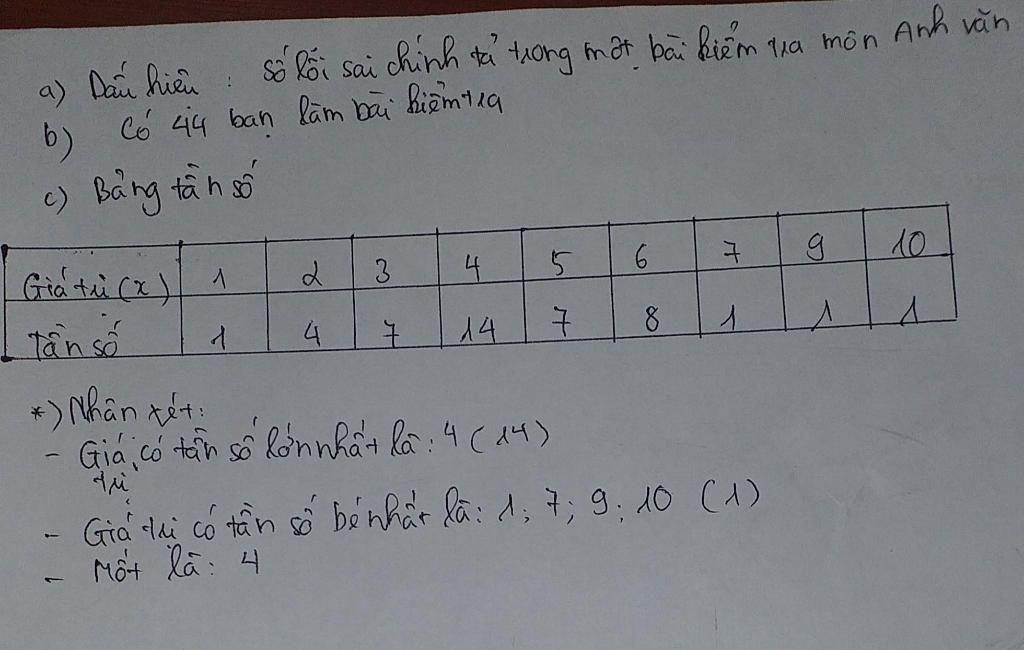 a) Dấu hiệu : số lỗi sai chính tả trong một bài kiểm tra môn Anh văn
b) Có 44 bạn làm bài kiểm tra
c) Bảng tần số
Giá trị (x) 1 2 3 4 5 6 7 9 10
Tần số 1 4 7 14 7 8 1 1 1
*) Nhận xét:
- Giá trị có tần số lớn nhất là: 4 (14)
- Giá trị có tần số bé nhất là: 1; 7; 9; 10 (1)
- Mốt là: 4